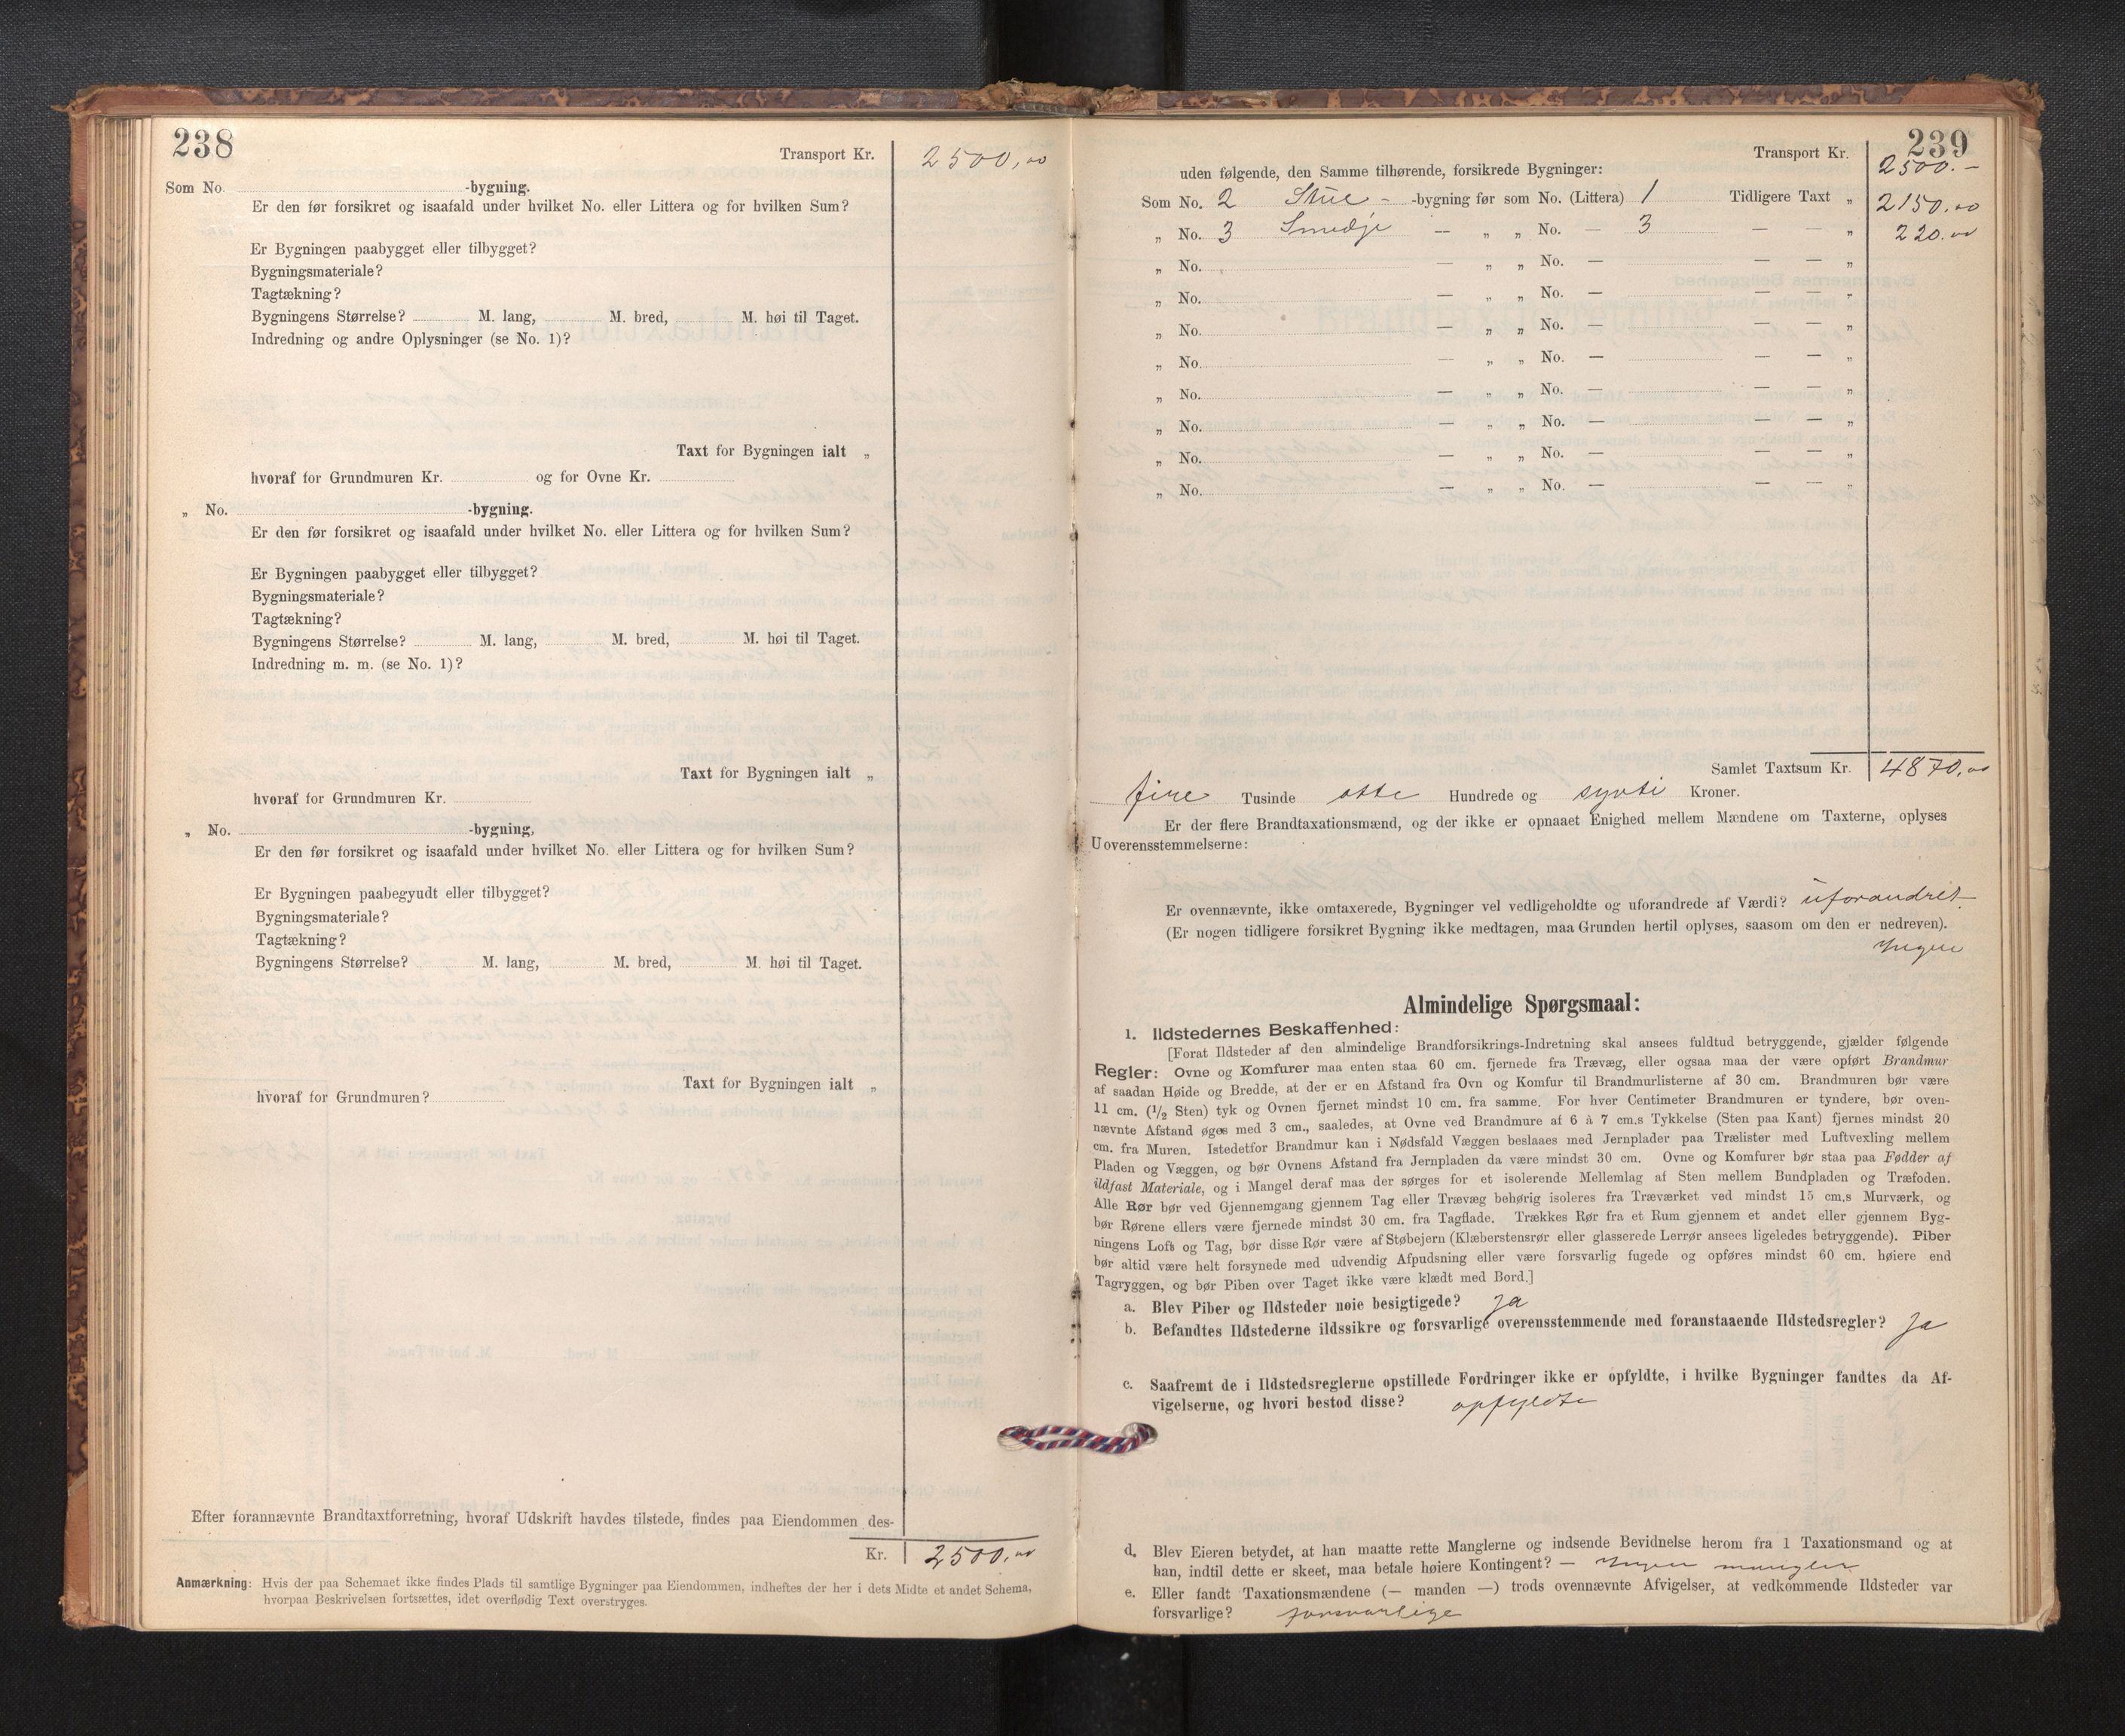 238
Transport Kr. 2500,00
Som No. -bygning.
Er den før forsikret og isaafald under hvilket No. eller Littera og for hvilken Sum?
Er Bygningen paabygget eller tilbygget?
Bygningsmateriale?
Tagtækning?
Bygningens Størrelse? M. lang, M. bred, M. høi til Taget.
Indredning og andre Oplysninger (se No. 1)?
Taxt for Bygningen ialt „
hvoraf for Grundmuren Kr. og for Ovne Kr.
„ No. -bygning.
Er den før forsikret og isaafald under hvilket No. eller Littera og for hvilken Sum?
Er Bygningen paabygget eller tilbygget?
Bygningsmateriale?
Tagtækning?
Bygningens Størrelse? M. lang, M. bred, M. høi til Taget.
Indredning m. m. (se No. 1)?
Taxt for Bygningen ialt „
hvoraf for Grundmuren Kr.
„ No. -bygning,
Er den før forsikret og isaafald under hvilket No. eller Littera og for hvilken Sum?
Er Bygningen paabegyndt eller tilbygget?
Bygningsmateriale?
Tagtækning?
Bygningens Størrelse? M. lang, M. bred, M. høi til Taget.
Taxt for Bygningen ialt „
hvoraf for Grundmuren?
Efter forannævnte Brandtaxtforretning, hvoraf Udskrift havdes tilstede, findes paa Eiendommen des-
Kr. 2500,00
Anmærkning: Hvis der paa Schemaet ikke findes Plads til samtlige Bygninger paa Eiendommen, indheftes der her i dets Midte et andet Schema,
hvorpaa Beskrivelsen fortsættes, idet overflødig Text overstryges.
239
Transport Kr. 2500.–
uden følgende, den Samme tilhørende, forsikrede Bygninger:
Som No. 2 Stue - -bygning før som No. (Littera) 1 Tidligere Taxt „ 2150.00
„ No. 3 Smedje — „ „ No. — 3 — — „ 220.00
„ No. — „ „ No. — — — „
„ No. — „ „ No. — — — „
„ No. — „ „ No. — — — „
„ No. — „ „ No. — — — „
„ No. — „ „ No. — — — „
„ No. — „ „ No. — — — „
„ No. — „ „ No. — — — „
„ No. — „ „ No. — — — „
Samlet Taxtsum Kr. 4870,00
fire Tusinde otte Hundrede og sytti Kroner.
Er der flere Brandtaxationsmænd, og der ikke er opnaaet Enighed mellem Mændene om Taxterne, oplyses
Uoverensstemmelserne:
Er ovennævnte, ikke omtaxerede, Bygninger vel vedligeholdte og uforandrede af Værdi? uforandret
(Er nogen tidligere forsikret Bygning ikke medtagen, maa Grunden hertil oplyses, saasom om den er nedreven).
Ingen
Almindelige Spørgsmaal:
1. Ildstedernes Beskaffenhed:
[Forat Ildsteder af den almindelige Brandforsikrings-Indretning skal ansees fuldtud betryggende, gjælder følgende
Regler: Ovne og Komfurer maa enten staa 60 cm. fjernede fra Trævæg, eller ogsaa maa der være opført Brandmur
af saadan Høide og Bredde, at der er en Afstand fra Ovn og Komfur til Brandmurlisterne af 30 cm. Brandmuren bør være
11 cm. (1/2 Sten) tyk og Ovnen fjernet mindst 10 cm. fra samme. For hver Centimeter Brandmuren er tyndere, bør oven-
nævnte Afstand øges med 3 cm., saaledes, at Ovne ved Brandmure af 6 à 7 cm.s Tykkelse (Sten paa Kant) fjernes mindst 20
cm. fra Muren. Istedetfor Brandmur kan i Nødsfald Væggen beslaaes med Jernplader paa Trælister med Luftvexling mellem
Pladen og Væggen, og bør Ovnens Afstand fra Jernpladen da være mindst 30 cm. Ovne og Komfurer bør staa paa Fødder af
ildfast Materiale, og i Mangel deraf maa der sørges for et isolerende Mellemlag af Sten mellem Bundpladen og Træfoden.
Alle Rør bør ved Gjennemgang gjennem Tag eller Trævæg behørig isoleres fra Træværket ved mindst 15 cm.s Murværk, og
bør Rørene ellers være fjernede mindst 30 cm. fra Tagflade. Trækkes Rør fra et Rum gjennem et andet eller gjennem Byg-
ningens Loft og Tag, bør disse Rør være af Støbejern (Klæberstensrør eller glasserede Lerrør ansees ligeledes betryggende). Piber
bør altid være helt forsynede med udvendig Afpudsning eller være forsvarlig fugede og opføres mindst 60 cm. høiere end
Tagryggen, og bør Piben over Taget ikke være klædt med Bord.]
a. Blev Piber og Ildsteder nøie besigtigede? Ja
b. Befandtes Ildstederne ildssikre og forsvarlige overensstemmende med foranstaaende Ildstedsregler? Ja
c. Saafremt de i Ildstedsreglerne opstillede Fordringer ikke er opfyldte, i hvilke Bygninger fandtes da Af-
vigelserne, og hvori bestod disse? opfyldte
d. Blev Eieren betydet, at han maatte rette Manglerne og indsende Bevidnelse herom fra 1 Taxationsmand og at
han, indtil dette er skeet, maa betale høiere Kontingent? — Ingen mangler
e. Eller fandt Taxationsmændene (— manden —) trods ovennævnte Afvigelser, at vedkommende Ildsteder var
forsvarlige? forsvarlige